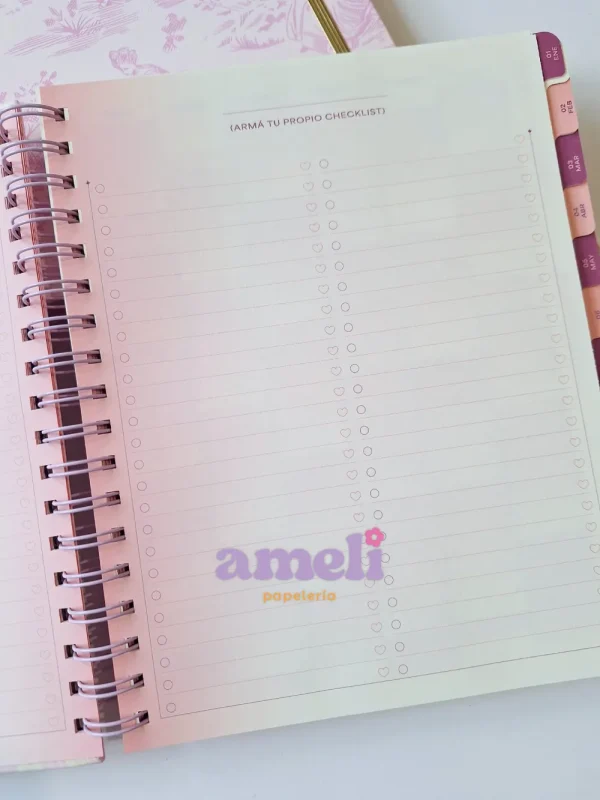 (ARMÁ TU PROPIO CHECKLIST)
01
ENE
02
FEB
03
MAR
04
ABR
05
MAY
ameli
papelería